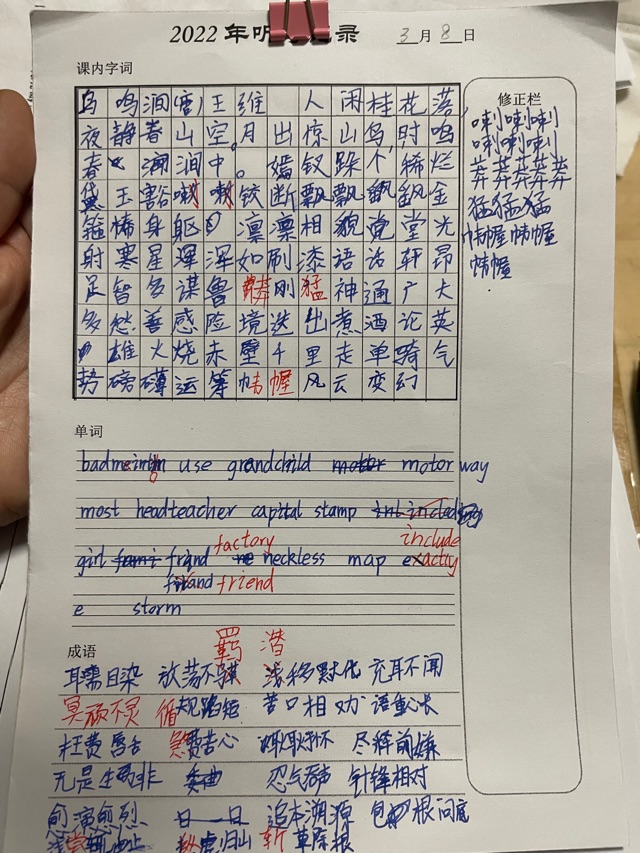 2022年听 录 3月8日
课内字词
修正栏
鸟鸣涧(唐)王维 人闲桂花落
夜静春山空。月出惊山鸟,时鸣
春 涧中。嫣钗跺个稀烂
袋玉豁嗽嗽铰断飘飘飖飖金
箍怖身躯 凛凛相貌堂堂光
射寒星浑浑如刷漆语话轩昂
足智多谋鲁莽刚猛神通广大
多愁善感险境迭出煮酒论英
雄火烧赤壁千里走单骑气
势磅礴运筹帏幄风云变幻
喇喇喇
喇喇喇
莽莽莽莽莽
猛猛猛
帏幄帏幄
帏幄
单词
badmeinton use grandchild motor motor way
most headteacher capital stamp
include
girl friand factory neckless map exactly
friand friend
e storm
成语
羁 潜
耳濡目染 放荡不 移默化 充耳不闻
冥顽不灵 循规蹈矩 苦口相劝 语重心长
枉费唇舌 煞费苦心 尽释前嫌
无是生非 委曲 忍气吞声 针锋相对
愈演愈烈 日一日 追本溯源 包 根问底
虎归山 斩草除根